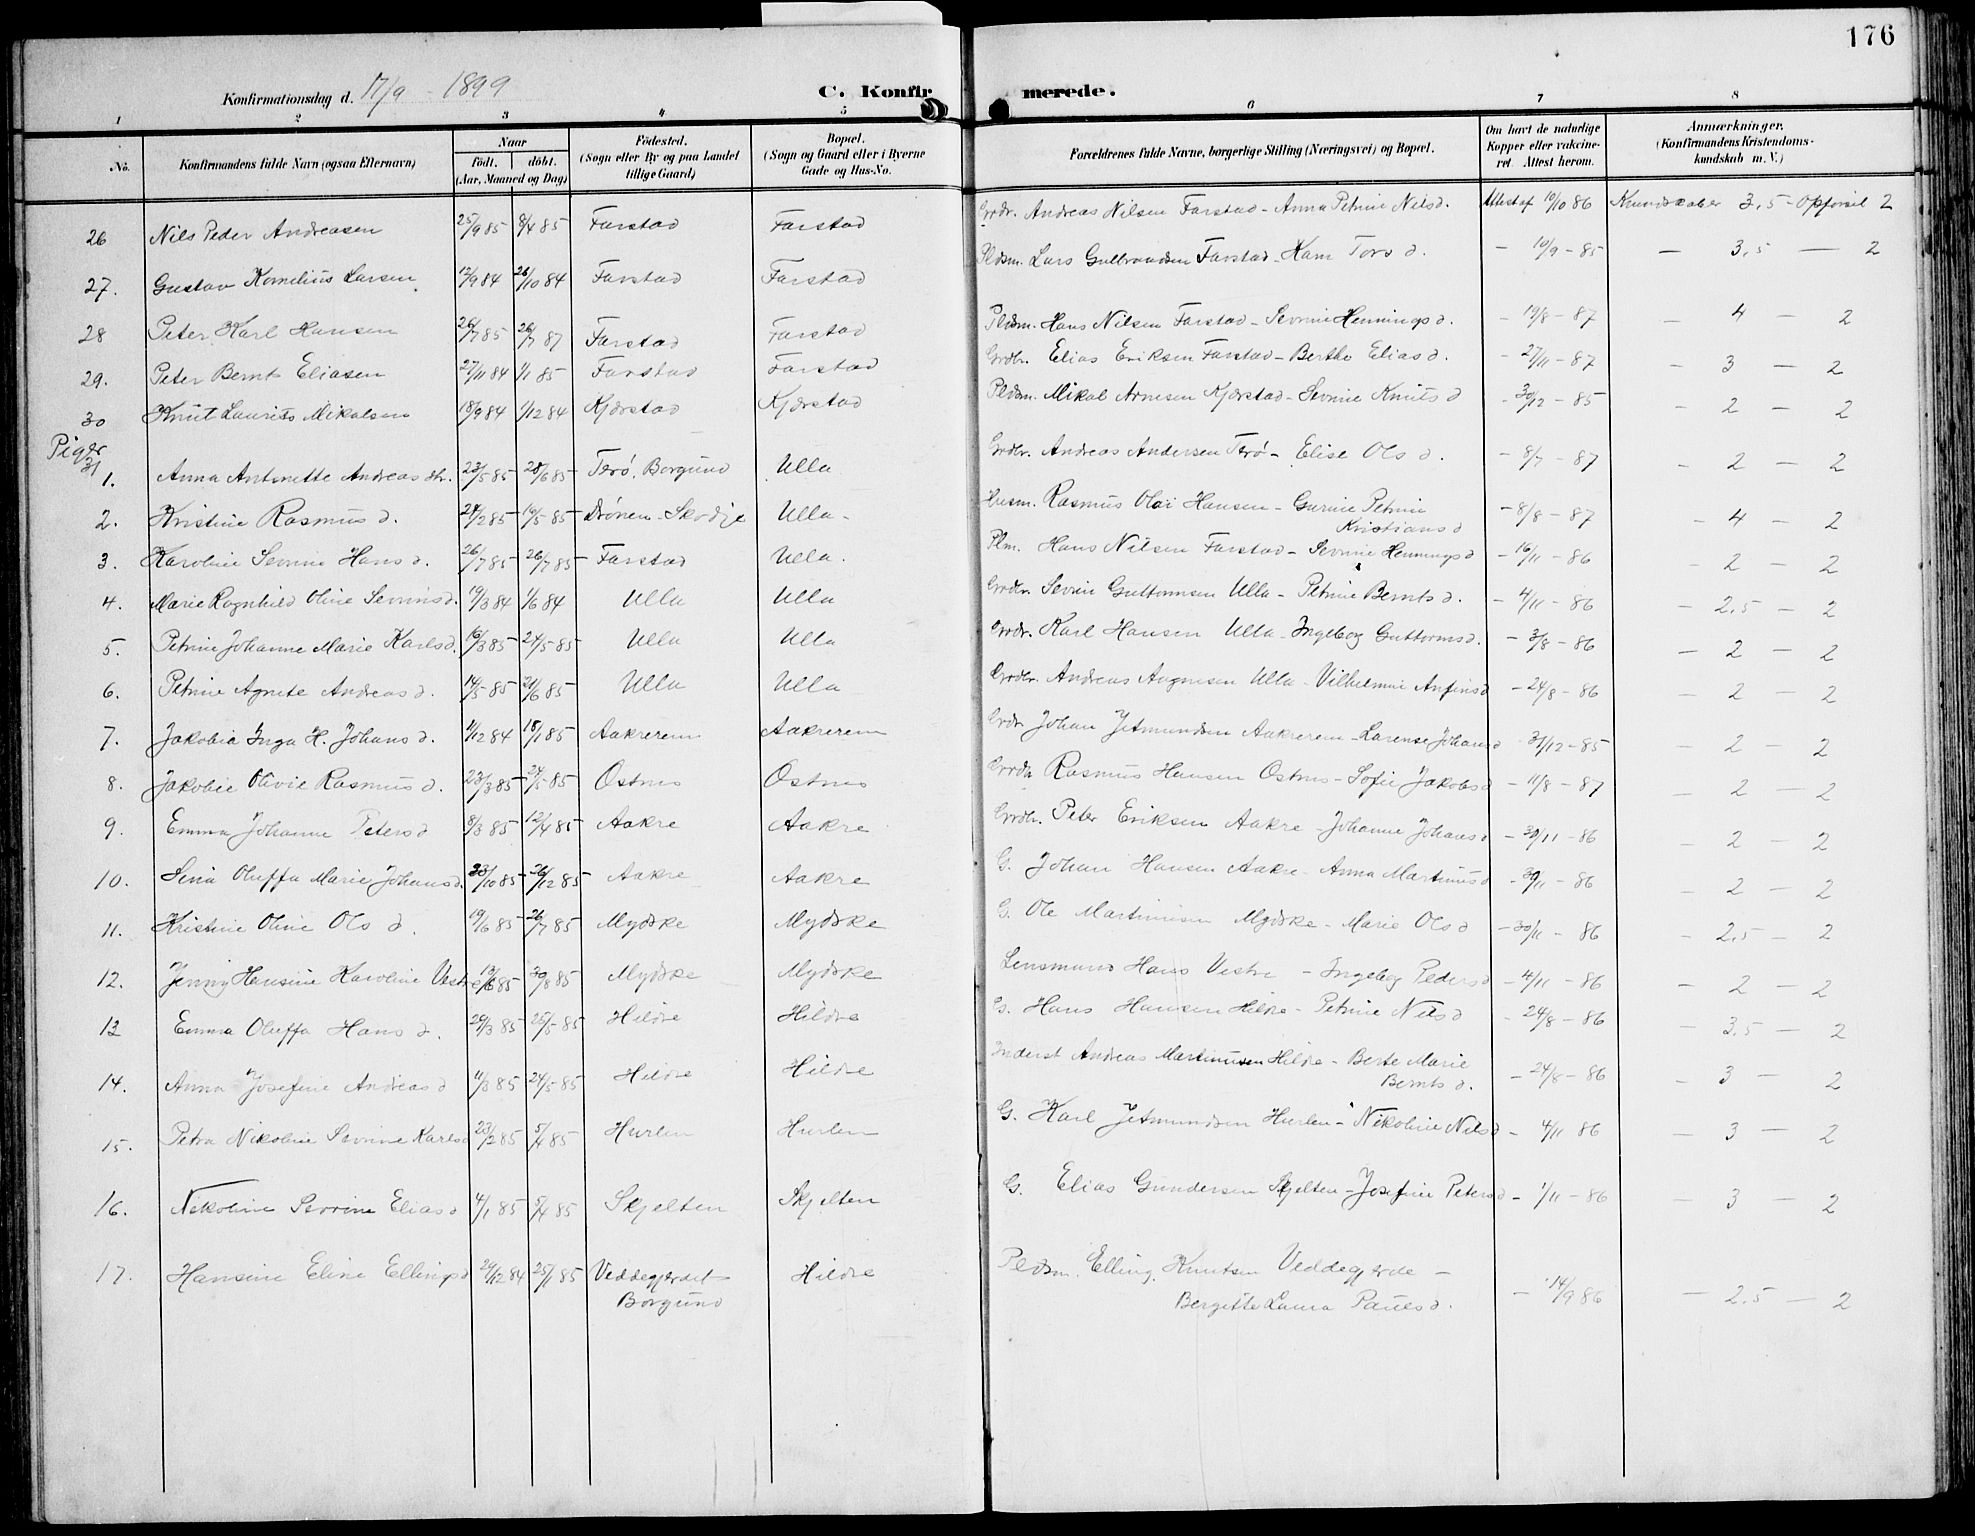 176
Konfirmationsdag d. 17/9 - 1899
C. Konfirmerede.
1 2 3 4 5 6 7 8
No.
Konfirmandens fulde Navn (ogsaa Efternavn)
Naar
födt. döbt.
(Aar, Maaned og Dag)
Födested.
(Sogn eller By og paa Landet
tillige Gaard)
Bopæl.
(Sogn og Gaard eller i Byerne
Gade og Hus-No.
Forældrenes fulde Navne, borgerlige Stilling (Næringsvei) og Bopæl.
Om havt de naturlige
Kopper eller vakcine-
ret. Attest herom.
Anmærkninger.
(Konfirmandens Kristendoms-
kundskab m. V.)
26 Nils Peder Andreasen 25/9 85 8/4 85 Farstad Farstad Grdr. Andreas Nilsen Farstad - Anna Petrine Nilsd. Attest af 10/10 86 Kundskaber 3,5 - Opførsel 2
27. Gustav Kornelius Larsen 12/9 84 26/10 84 Farstad Farstad Pldsm. Lars Gulbrandsen Farstad - Hans Tors d. - 10/9 - 85 - 3,5 - 2
28 Peter Karl Hansen 26/7 85 26/7 87 Farstad Farstad Pldsm. Hans Nilsen Farstad - Sevrine Hennings d. - 19/8 - 87 - 4 - 2
29. Peter Bernt Eliasen 27/11 84 1/1 85 Farstad Farstad Grdbr. Elias Eriksen Farstad - Berthe Elias d. - 27/11 - 87 - 3 - 2
30 Knut Laurits Mikalsen 18/9 84 1/12 84 Kjærstad Kjærstad Pldsm. Mikal Arnesen Kjærstad - Sevrine Knuts d - 30/12 - 85 - 2 - 2
Piger
31
1. Anna Antonette Andreas dtr. 23/5 85 28/6 85 Terø, Borgund Ulla Grdbr. Andreas Andersen Terø - Elise Ols d. - 8/7 - 87 - 2 - 2
2. Kristine Rasmus d. 24/2 85 16/5 85 Drönen - Skodje Ulla - Husm. Rasmus Olai Hansen - Gurine Petrine
Kristians d - 8/8 - 87 - 4 - 2
3. Karoline Sevrine Hans d. 26/7 85 26/7 85 Farstad Ulla. Plm. Hans Nilsen Farstad - Sevrine Hennings d - 16/11 - 86 - 2 - 2
4. Marie Ragnhild Oline Sevrins d. 19/3 84 1/6 84 Ulla Ulla Grdbr. Sevrin Guttormsen Ulla - Petrine Bernts d. - 4/11 - 86 - 2,5 - 2
5. Petrine Johanne Marie Karls d. 16/3 85 24/5 85 Ulla Ulla Grdr. Karl Hansen Ulla - Ingeborg Guttorms d. - 3/8 - 86 - 2 - 2
6. Petrine Agnete Andreas d. 14/5 85 21/6 85 Ulla Ulla Grdbr. Andreas Aagnesen Ulla - Vilhelmine Anfins d - 24/8 - 86 - 2 - 2
7. Jakobia Inga H. Johans d. 11/12 84 18/1 85 Aakrerem Aakrerem Grdr. Johan Jetmundsen Aakrerem - Larense Johans d 31/12 - 85 - 2 - 2
8. Jakobie Olivie Rasmus d. 23/3 85 24/5 85 Ostnes Ostnes Grdr. Rasmus Hansen Ostnes - Sofie Jakobs d - 11/8 - 87 - 2 - 2
9. Emma Johanne Peters d 8/3 85 12/4 85 Aakre Aakre Grdbr. Peter Eriksen Aakre - Johanne Johans d - 30/11 - 86 - 2 - 2
10. Sina Oluffa Marie Johans d. 23/10 85 26/12 85 Aakre Aakre G. Johan Hansen Aakre - Anna Martinus d - 30/11 - 86 - 2 - 2
11. Kristine Oline Ols d. 19/6 85 26/7 85 Mydske Mydske G. Ole Martinusen Mydske - Marie Ols d - 30/11 - 86 - 2,5 - 2
12. Jenny Hansine Karoline Vestre 13/6 85 30/8 85 Mydske Mydske Lensmand Hans Vestre - Ingebog Peders d - 4/11 - 86 - 2 - 2
13 Emma Oluffa Hans d. 29/3 85 25/5 85 Hildre Hildre G. Hans Hansen Hildre - Petrine Nils d - 24/8 - 86 - 3,5 - 2
14. Anna Josefine Andreas d 11/3 85 24/5 85 Hildre Hildre Inderst Andreas Martinusen Hildre - Berte Marie
Bernts d. - 24/8 - 86 - 3 - 2
15. Petra Nikoline Sevrine Karls d 23/2 85 5/4 85 Hurlen Hurlen G. Karl Jetmundsen Hurlen - Nikoline Nils d - 4/11 86 - 3 - 2
16. Nikoline Sevrine Elias d 4/1 85 5/4 85 Skjelten Skjelten G. Elias Gundersen Skjelten - Josefine Peters d - 1/11 - 86 - 3 - 2
17. Hansine Eline Ellings d 29/12 84 25/1 85 Veddegjerdet
Borgund Hildre Pldsm. Elling Knutsen Veddegjerde -
Bergitte Laura Pauls d. - 14/9 86 - 2,5 - 2